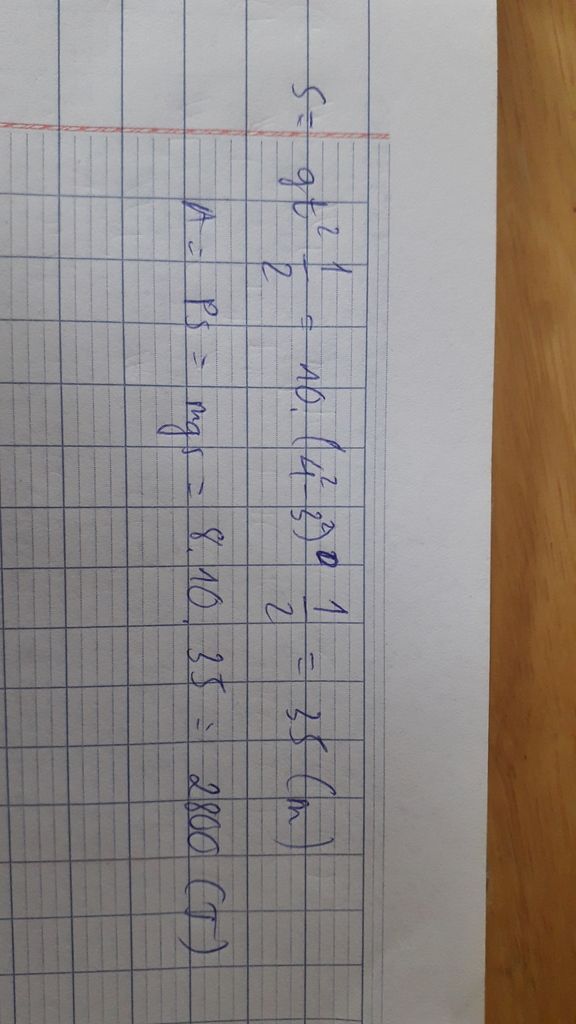 S = gt² 1/2 = 10. (4² - 3²) . 1/2 = 35 (m)
A = Ps = mgs = 8.10.35 = 2800 (J)